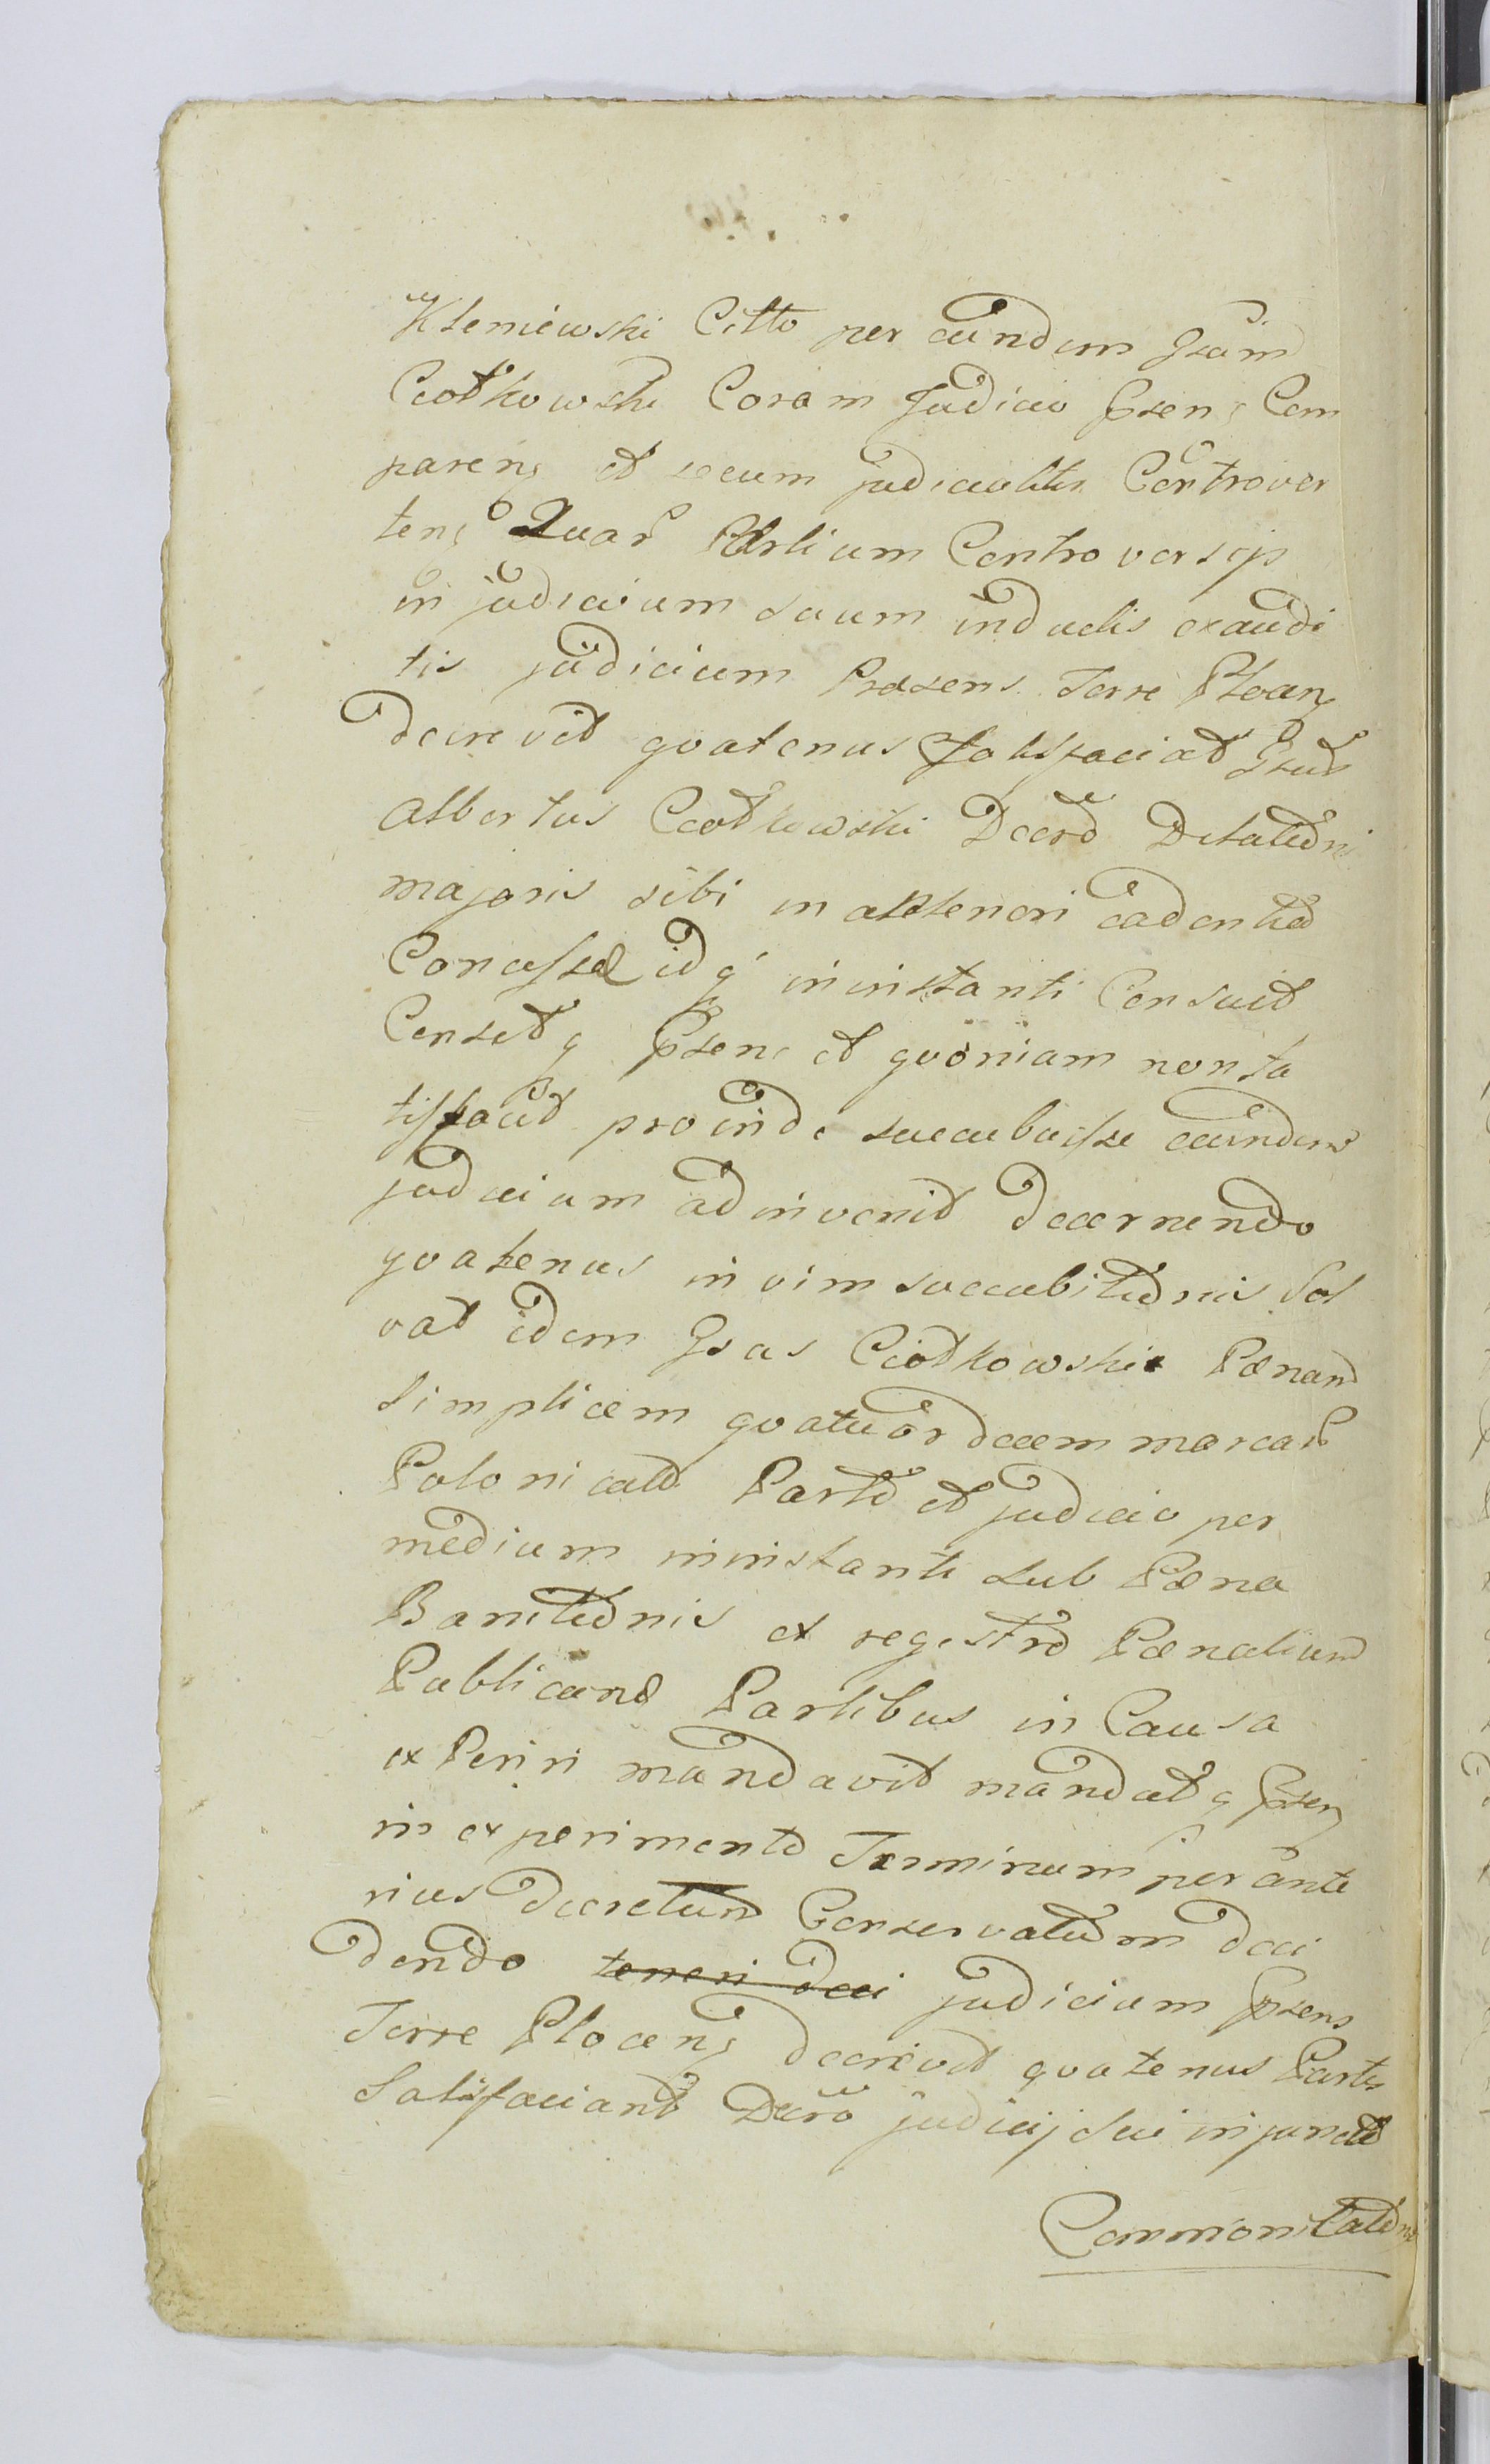 Kleniewski Citto per eundem Gsum
Ciotkowski Coram Judicio Psens Com
parens et secum judicialiter Controver
tens Quar Partium Controversijs
in judicium suum inductis exaudi
tis judicium Præsens Terre Plocens
decrevit qvatenus satisfaciat Gsus
Albertus Ciotkowski Decrto Dilationi
majoris sibi in anteriori cadentia
Concessæ idq ininstanti Censuit
Censetq Psens et qvoniam non sa
tisfacit proinde succubuisse eundem
judicium adinvenit decernendo
qvatenus in vim succubitionis Sol
vat idem Gsus Ciotkowski Pænam
Simplicem qvatuordecem marcar
Polonicales Parti et judicio per
medium ininstanti sub Pæna
Banitionis ex regestro Pænalium
Publicand Partibus in Causa
experiri mandavit mandatq Psens
in experimento Terminum per ante
rius decretum Conservatum deci
dendo teneri deci judicium Psens
Terre Plocens decrevit qvatenus Partes
Satisfaciant Decro judicij sui injuncto
Communicationi